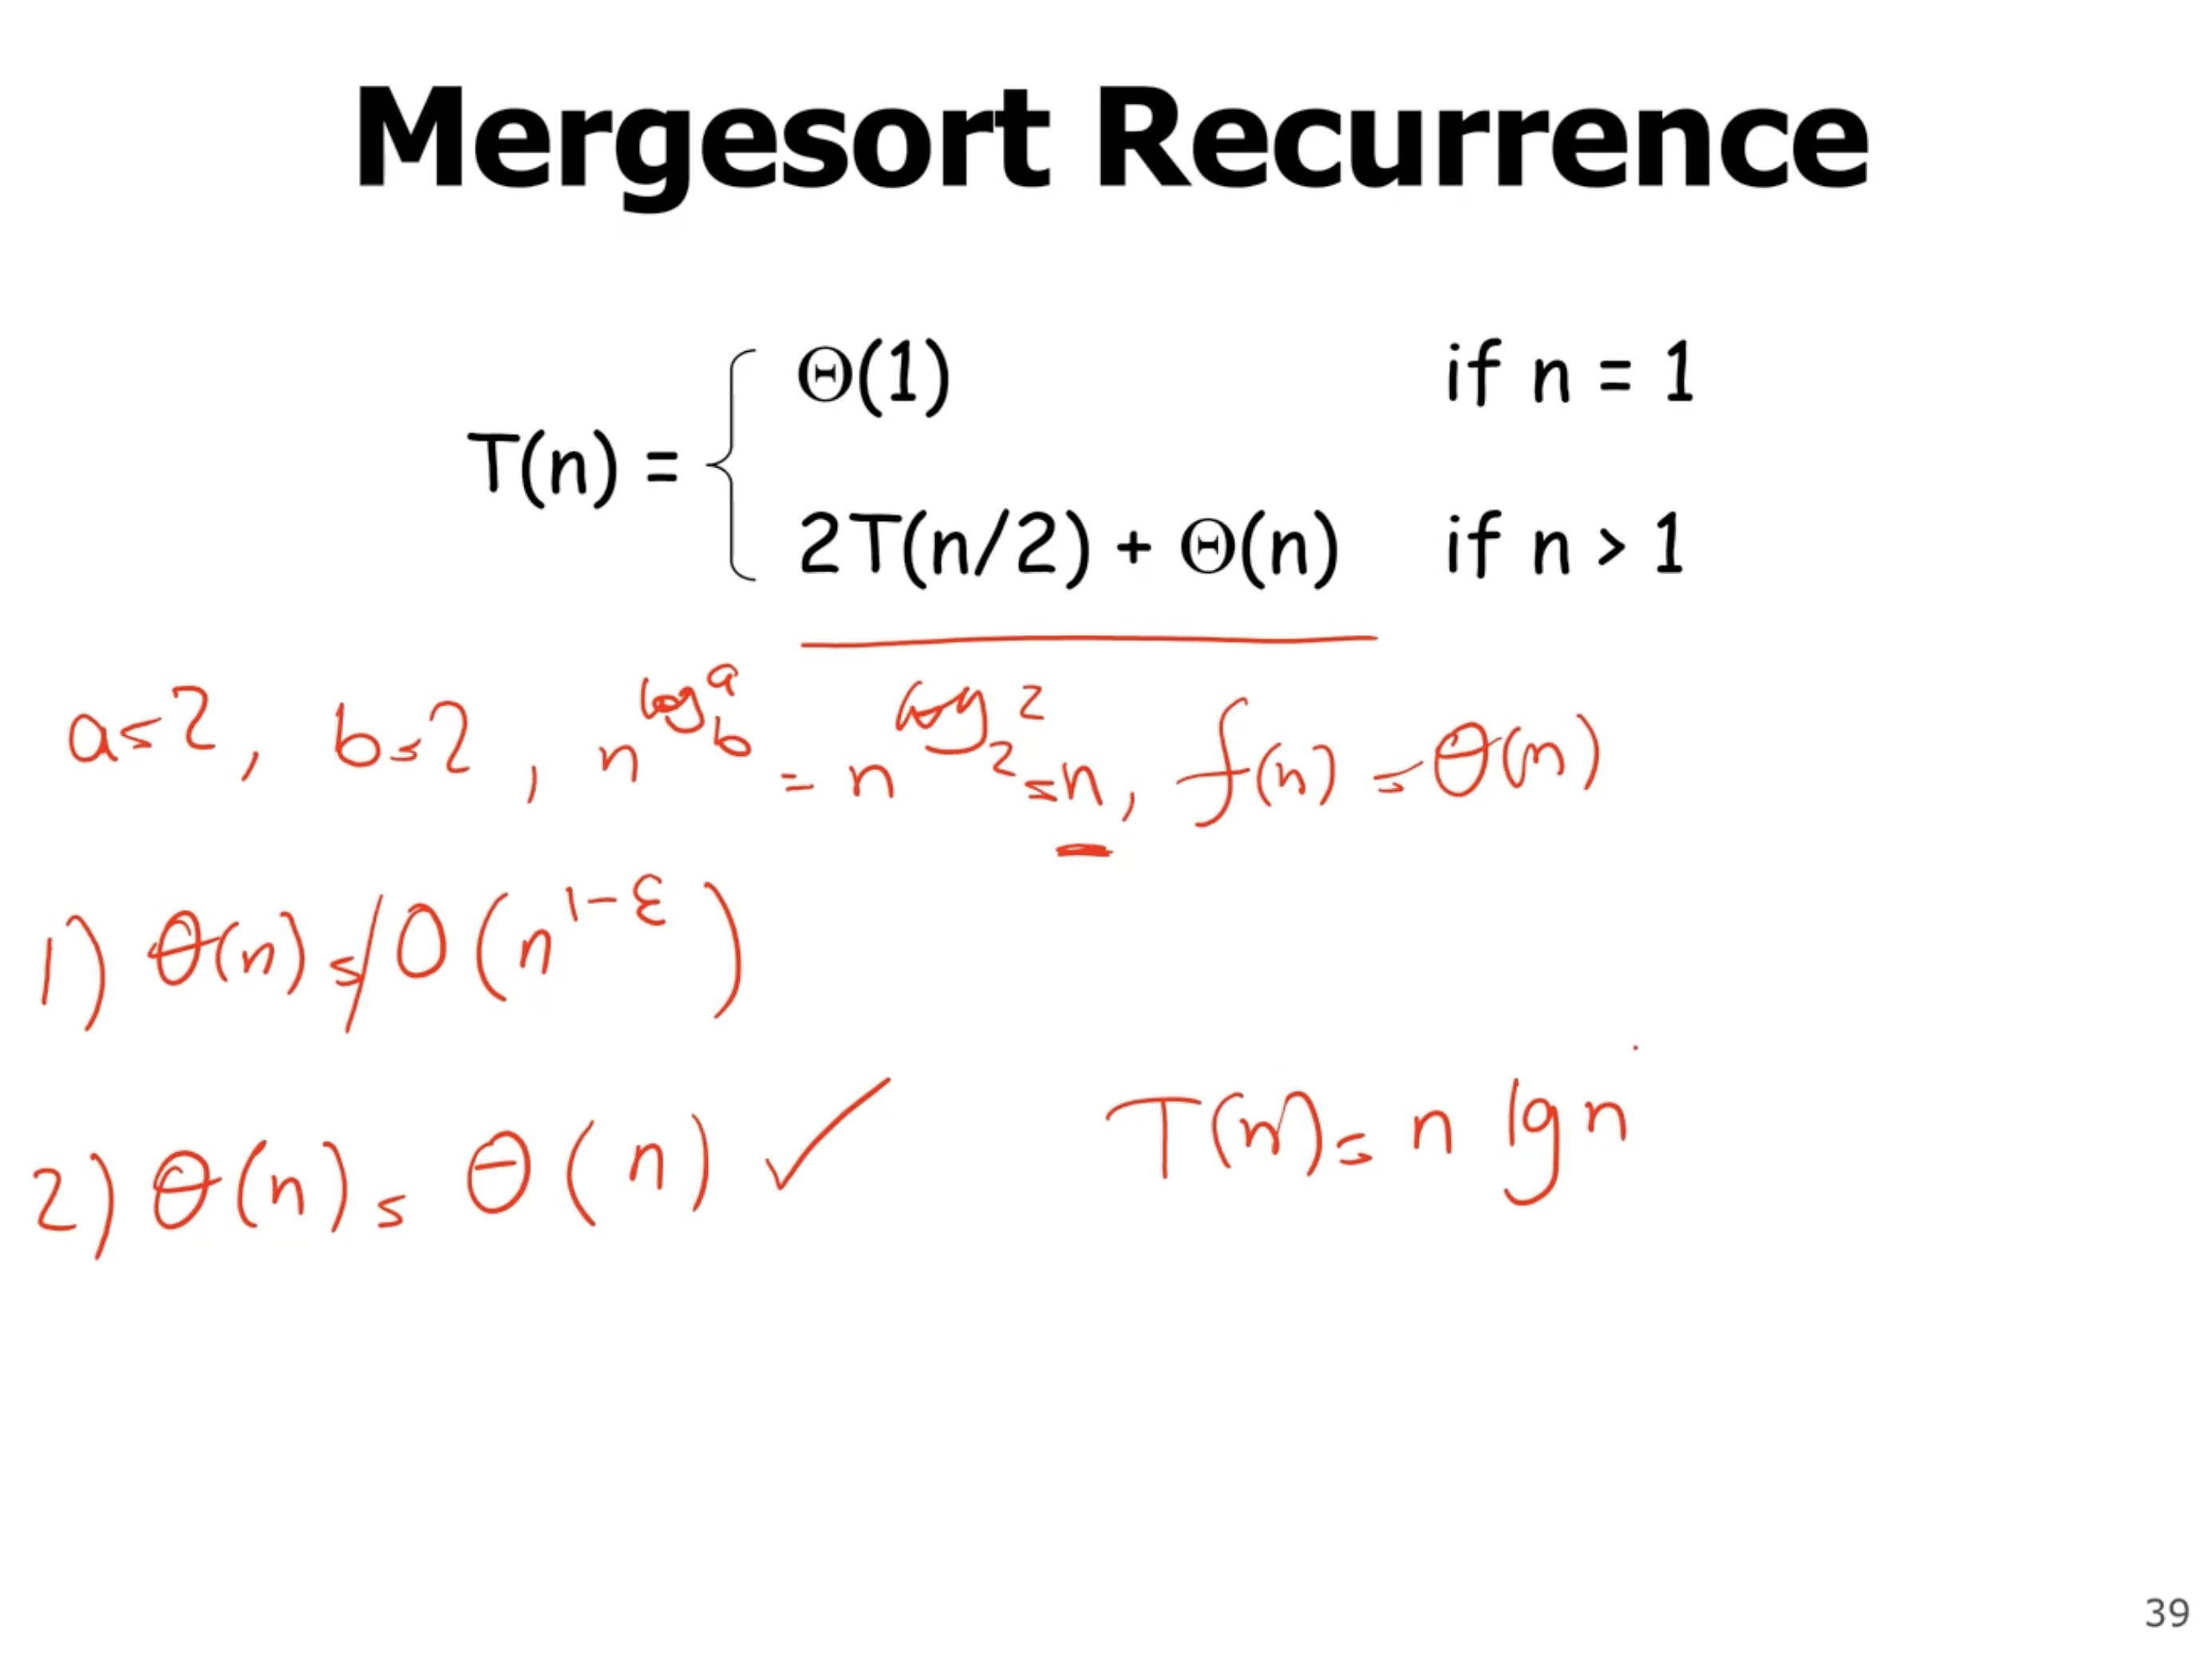 Mergesort Recurrence
Θ(1) if n = 1
T(n) =
2T(n/2) + Θ(n) if n > 1
a=2, b=2, n^log_b^a = n^log_2^2 = n, f(n) = Θ(n)
1) Θ(n) ≠ O(n^1-ε)
2) Θ(n) = Θ(n) ✓ T(n) = n lg n
39